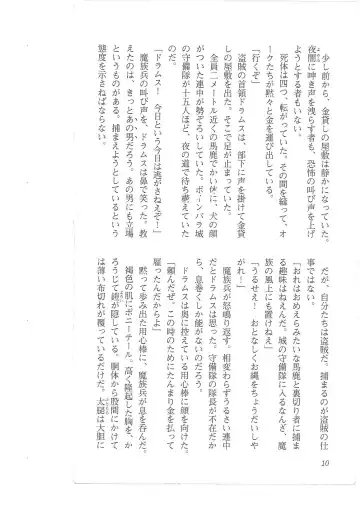 少し前から、金貸しの屋敷は静かになっていた。
夜闇に呻き声を洩らす者も、恐怖の叫び声を上げ
ようとする者もいない。
死体は四つ、転がっていた。その間を縫って、オ
ークたちが黙々と金を運び出している。
「行くぞ」
盗賊の首領ドラムスは、部下に声を掛けて金貸
しの屋敷を出た。そこで足が止まっていた。
全員二メートル近くの馬鹿でかい体に、犬の顔
がついた連中が勢ぞろいしていた。ボーンバラ城
の守備隊が十五人ほど、夜の道で待ち構えていた
のだ。
「ドラムス！　今日という今日は逃がさねえぞ！」
魔族兵の叫び声を、ドラムスは鼻で笑った。教
えたのは、きっとあの男だろう。あの男にも立場
というものがある。捕まえようとしているという
態度を示さねばならない。
だが、自分たちは盗賊だ。捕まるのが盗賊の仕
事ではない。
「おれはおめえらみたいな馬鹿と裏切り者に捕ま
る趣味はねえんだ。城の守備隊に入るなんざ、魔
族の風上にも置けねえ」
「うるせえ！　おとなしくお縄をちょうだいしや
がれ！」
魔族兵が怒鳴り返す。相変わらずうるさい連中
だとドラムスは思った。守備隊の隊長が不在だか
ら、息巻くしか能がないのだろう。
ドラムスは奥に控えている用心棒に顔を向けた。
「頼んだぜ。この時のためにたんまり金を払って
雇ったんだからよ」
黙って歩み出た用心棒に、魔族兵が息を呑んだ。
褐色の肌にポニーテール。高く隆起した胸を、か
ろうじて鎧が隠している。胴体から股間にかけて
は薄い布切れが覆っているだけだ。太腿は大胆に
10